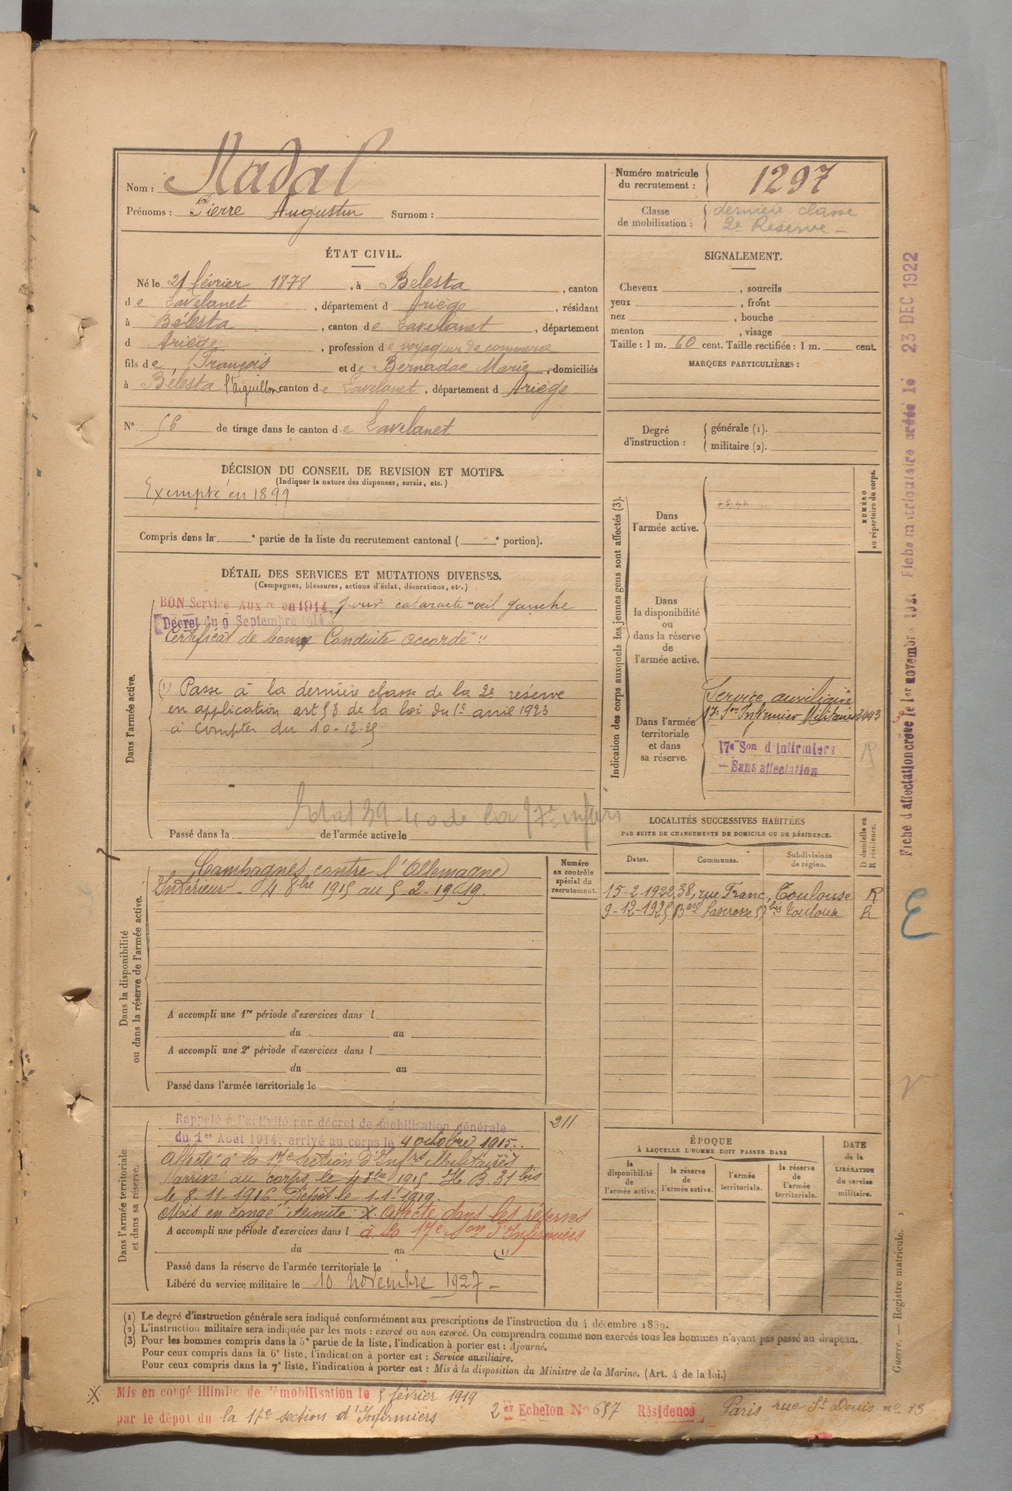 Nom : Nadal
Prénoms : Pierre Augustin Surnom :
Numéro matricule du recrutement : 1297
Classe de mobilisation : dernière classe 2e Réserve
ÉTAT CIVIL.
Né le 21 février 1878, à Bélesta, canton
de Lavelanet, département d Ariège, résidant
à Bélesta, canton de Lavelanet, département
d Ariège, profession de voyageur de commerce
fils de François et de Bernadac Marie, domiciliés
à Bélesta l'Aiguillon canton de Lavelanet, département d Ariège
N° 56 de tirage dans le canton de Lavelanet
SIGNALEMENT.
Cheveux , sourcils
yeux , front
nez , bouche
menton , visage
Taille : 1 m. 60 cent. Taille rectifiée : 1 m. cent.
MARQUES PARTICULIÈRES :
Degré d'instruction : générale (1).
militaire (2).
DÉCISION DU CONSEIL DE REVISION ET MOTIFS.
(Indiquer la nature des dispenses, sursis, etc.)
Exempté en 1899
Compris dans la e partie de la liste du recrutement cantonal ( e portion).
DÉTAIL DES SERVICES ET MUTATIONS DIVERSES.
(Campagnes, blessures, actions d'éclat, décorations, etc.)
Dans l'armée active.
BON Service Auxre en 1914 pour cataracte œil gauche
Décret du 9 Septembre 1914
Certificat de bonne Conduite accordé
(1) Passé à la dernière classe de la 2e réserve
en application art 58 de la loi du 1er avril 1923
à compter du 10-12-25
Passé dans la de l'armée active le
Indication des corps auxquels les jeunes gens sont affectés (3).
NUMÉRO au répertoire du corps.
Dans l'armée active.
Dans la disponibilité ou dans la réserve de l'armée active.
Dans l'armée territoriale et dans sa réserve.
Service auxiliaire
17e Son Infirmiers Militaires
17e Son d'Infirmiers
— Sans affectation
LOCALITÉS SUCCESSIVES HABITÉES
PAR SUITE DE CHANGEMENTS DE DOMICILE OU DE RÉSIDENCE.
D domicile ou R résidence.
Dates. Communes. Subdivisions de région.
15-2-1922 38, rue Franc, Toulouse R
9-12-1925 Toulouse R
Dans la disponibilité ou dans la réserve de l'armée active.
Numéro au contrôle spécial du recrutement.
Campagnes contre l'Allemagne
Intérieur 4 8bre 1915 au 5.2.1919.
A accompli une 1re période d'exercices dans l
du au
A accompli une 2e période d'exercices dans l
du au
Passé dans l'armée territoriale le
Dans l'armée territoriale et dans sa réserve.
211
Rappelé à l'activité par décret de mobilisation générale
du 1er Août 1914, arrivé au corps le 4 octobre 1915.
Affecté à la 17e Section d'Infrs Militaires
arrivé au corps le 4 8bre 1915 31 bis
le 8.11.1916. Dépôt le 1.1.1919.
Mis en congé illimité X Affecté dans les réserves
A accompli une période d'exercices dans l à la 17e Son d'Infirmiers
du au (1)
Passé dans la réserve de l'armée territoriale le
Libéré du service militaire le 10 Novembre 1927
ÉPOQUE
À LAQUELLE L'HOMME DOIT PASSER DANS
la disponibilité de l'armée active.
la réserve de l'armée active.
l'armée territoriale.
la réserve de l'armée territoriale.
DATE de la LIBÉRATION du service militaire.
(1) Le degré d'instruction générale sera indiqué conformément aux prescriptions de l'instruction du 4 décembre 1889.
(2) L'instruction militaire sera indiquée par les mots : exercé ou non exercé. On comprendra comme non exercés tous les hommes n'ayant pas passé au drapeau.
(3) Pour les hommes compris dans la 5e partie de la liste, l'indication à porter est : Ajourné.
Pour ceux compris dans la 6e liste, l'indication à porter est : Service auxiliaire.
Pour ceux compris dans la 7e liste, l'indication à porter est : Mis à la disposition du Ministre de la Marine. (Art. 4 de la loi.)
X Mis en congé illimité de démobilisation le 5 février 1919
par le dépôt du la 17e section d'Infirmiers 2er Echelon No 657 Résidence Paris rue St Denis no 13
Guerre. — Registre matricule.